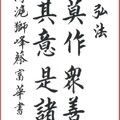 弘法
莫作衆善
其意是諸
滬獅峰蔡富華書